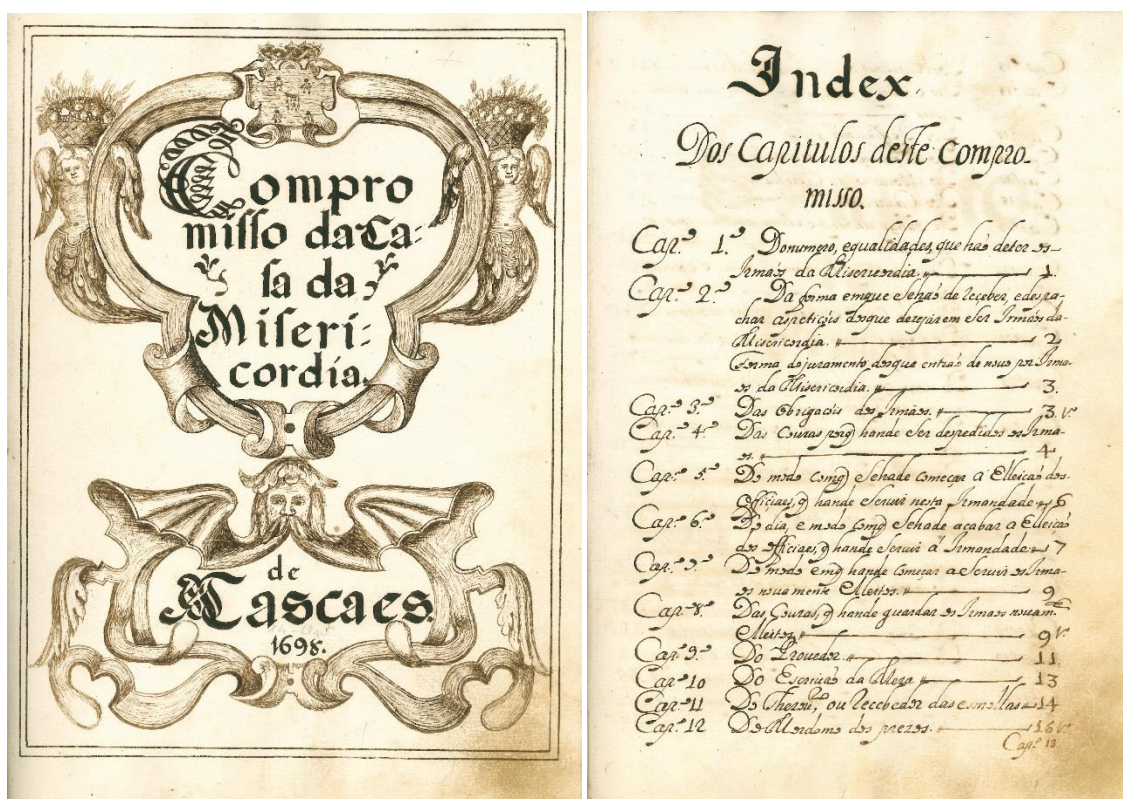 Compro
misso da Ca-
sa da
Miseri-
cordia.
de
Cascaes.
1698.
Index.
Dos Capitulos deste Compro-
misso.
Cap.º 1.º Donumero, equalidades, que hão deter os
Irmãos da Misericordia. 1.
Cap.º 2.º Da forma emque sehão de receber, edespa-
char aspetições dosque dezejarem ser Irmãos da
Misericordia. 2
Forma dojuramento, dosque entrão de novo por Irma-
os da Misericordia. 3.
Cap.º 3.º Das obrigaçõis dos Irmãos. 3. v.º
Cap.º 4.º Das Couzas porq̃ hande ser despedidos os Irma-
os. 4
Cap.º 5.º Do modo comq̃ sehade começar a Elleição dos
Officiaes, q̃ hande servir nesta Irmandade 6
Cap.º 6.º Do dia, e modo comq̃ sehade acabar a Elleição
dos officiaes, q̃ hande servir á Irmandade 7
Cap.º 7.º Do modo emq̃ hande começar a servir os Irma-
os novamente Elleitos. 9
Cap.º 8.º Das Couzas, q̃ hande guardar os Irmãos novam.te
Elleitos 9 v.º
Cap.º 9.º Do Provedor. 11
Cap.º 10 Do Escrivão da Meza 13
Cap.º 11 Do Thezou.ro, ou Recebedor das esmollas 14
Cap.º 12 Do Mordomo dos prezos. 15 v.º
Cap.º 13